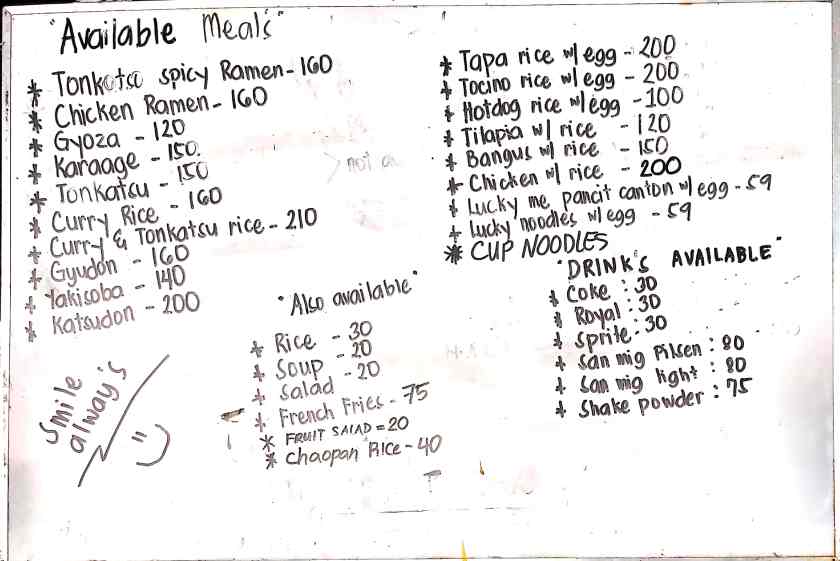 "Available Meal's"
* Tonkotsu spicy Ramen - 160
* Chicken Ramen - 160
* Gyoza - 120
* Karaage - 150
* Tonkatsu - 150
* Curry Rice - 160
* Curry & Tonkatsu rice - 210
* Gyudon - 160
* Yakisoba - 140
* Katsudon - 200
> not
* Tapa rice w/ egg - 200
* Tocino rice w/ egg - 200
* Hotdog rice w/ egg - 100
* Tilapia w/ rice - 120
* Bangus w/ rice - 150
* Chicken w/ rice - 200
* Lucky me pancit canton w/ egg - 59
* Lucky noodles w/ egg - 59
* CUP NOODLES
"Also available"
* Rice - 30
* Soup - 20
* Salad - 20
* French Fries - 75
* FRUIT SALAD = 20
* Chaopan Rice - 40
"DRINK'S AVAILABLE"
* Coke : 30
* Royal : 30
* Sprite : 30
* San mig Pilsen : 80
* San mig light : 80
* Shake powder : 75
Smile
alway's